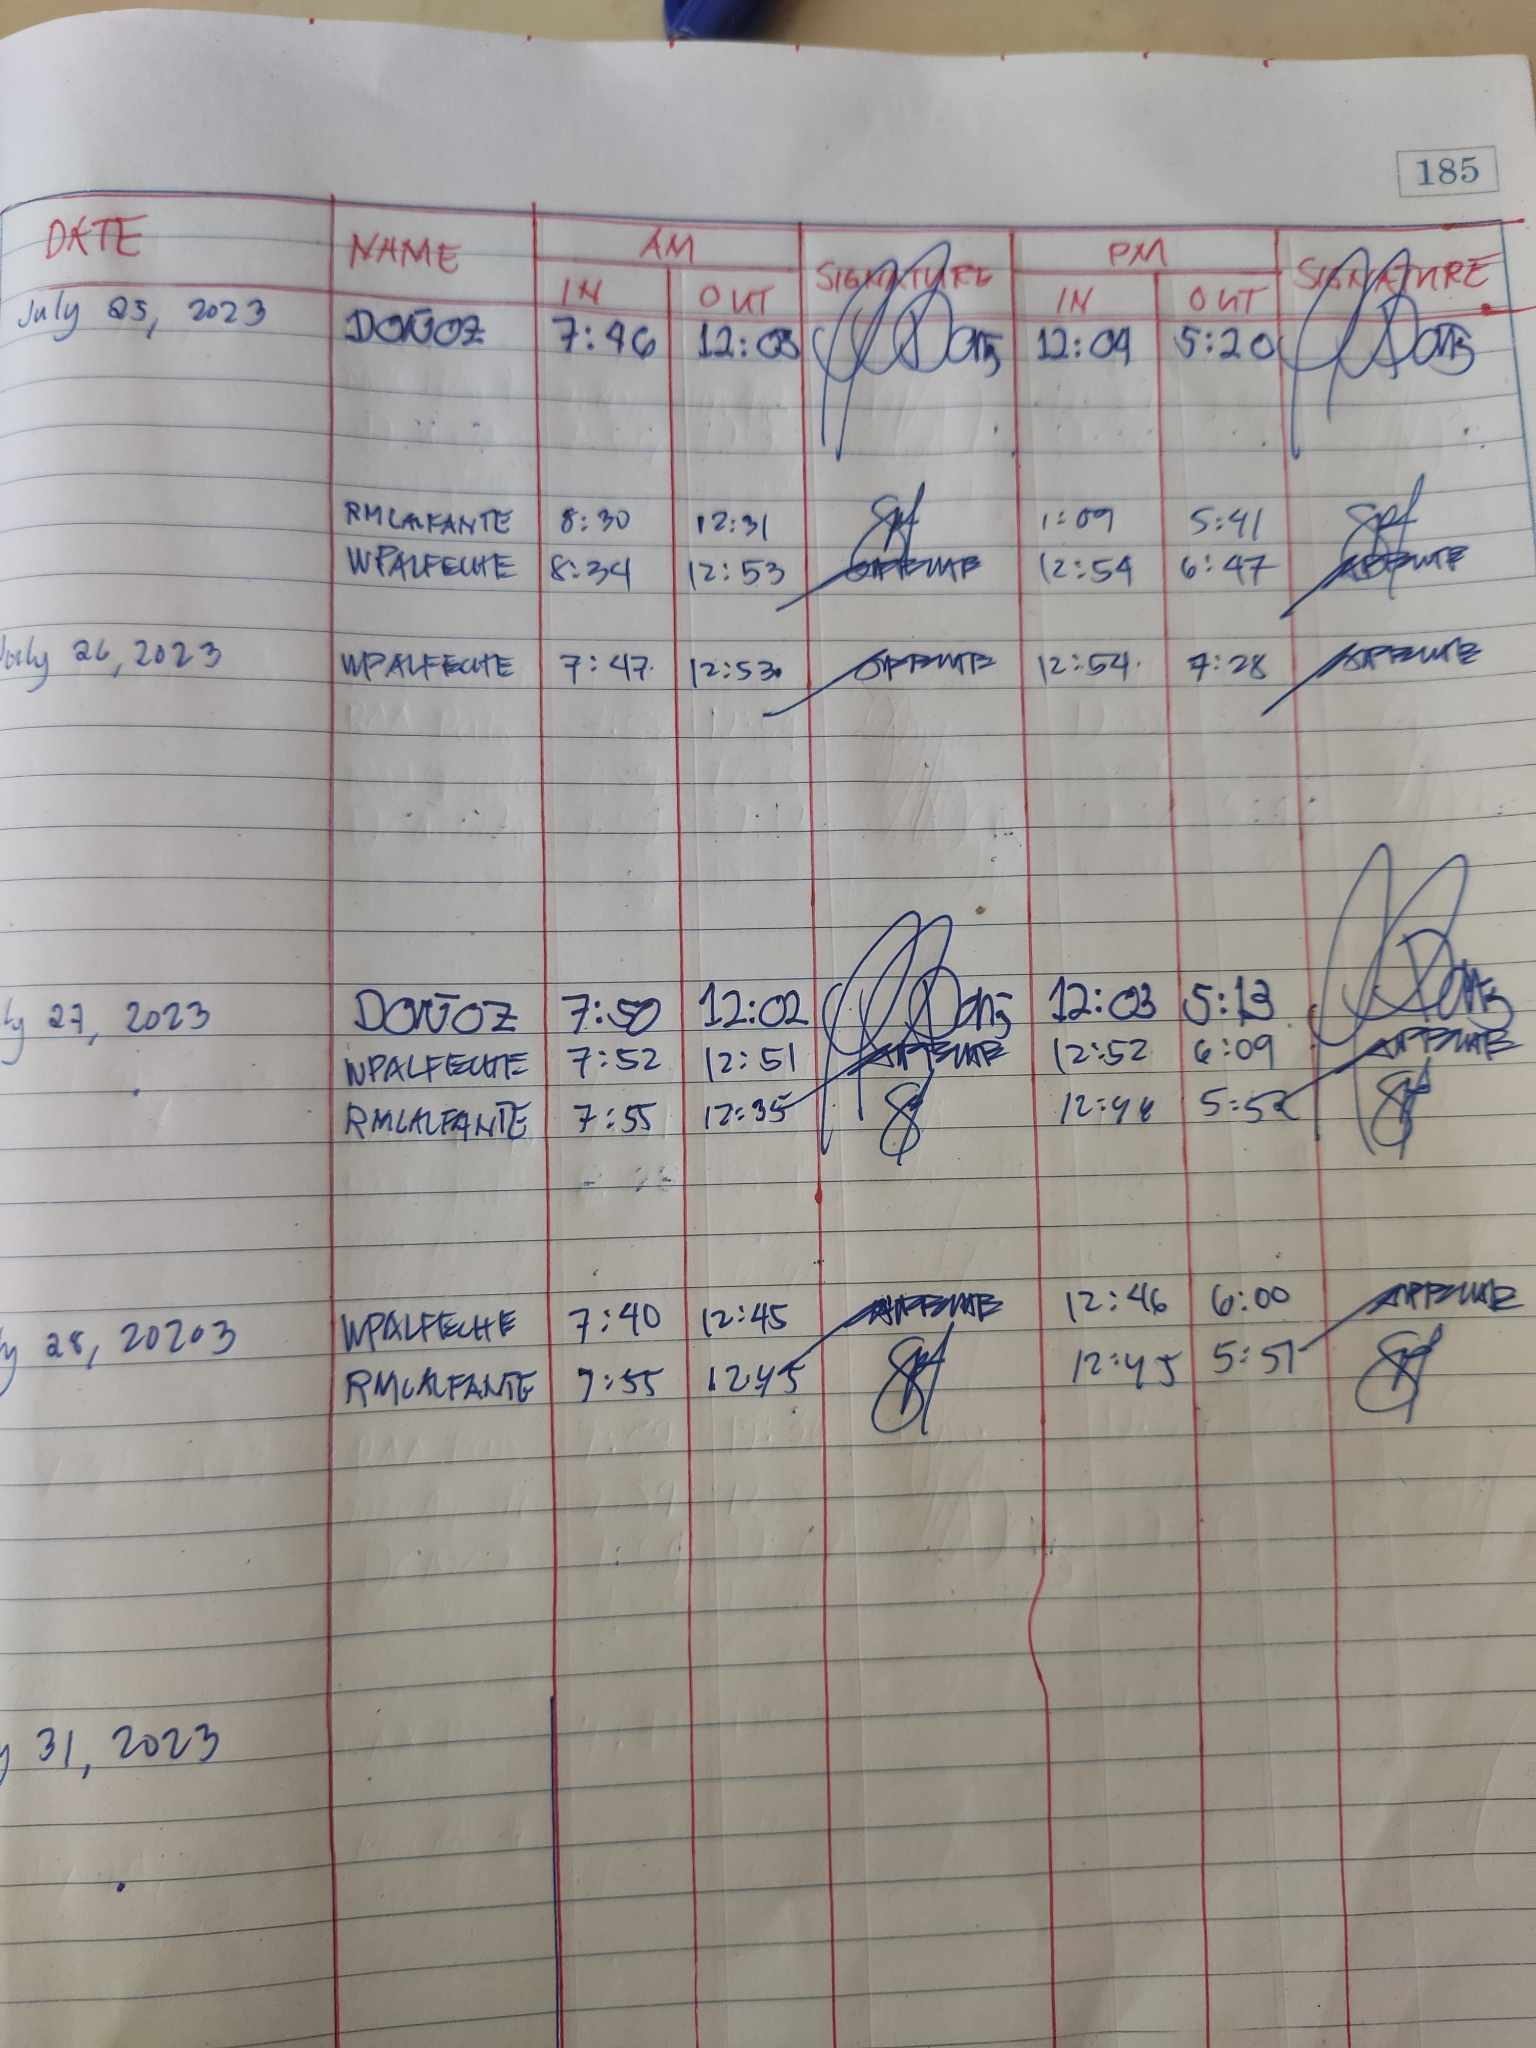 185
DATE NAME AM SIGNATURE PM SIGNATURE
IN OUT IN OUT
July 25, 2023 DOÑOZ 7:46 12:03 12:04 5:20
RMCALFANTE 8:30 12:31 1:09 5:41
WPALFECHE 8:34 12:53 12:54 6:47
July 26, 2023 WPALFECHE 7:47 12:53 12:54 7:28
ly 27, 2023 DOÑOZ 7:50 12:02 12:03 5:13
WPALFECHE 7:52 12:51 12:52 6:09
RMCALFANTE 7:55 12:35
y 28, 20203 WPALFECHE 7:40 12:45 12:46 6:00
RMCALFANTE 7:55 12:45 12:45 5:51
y 31, 2023